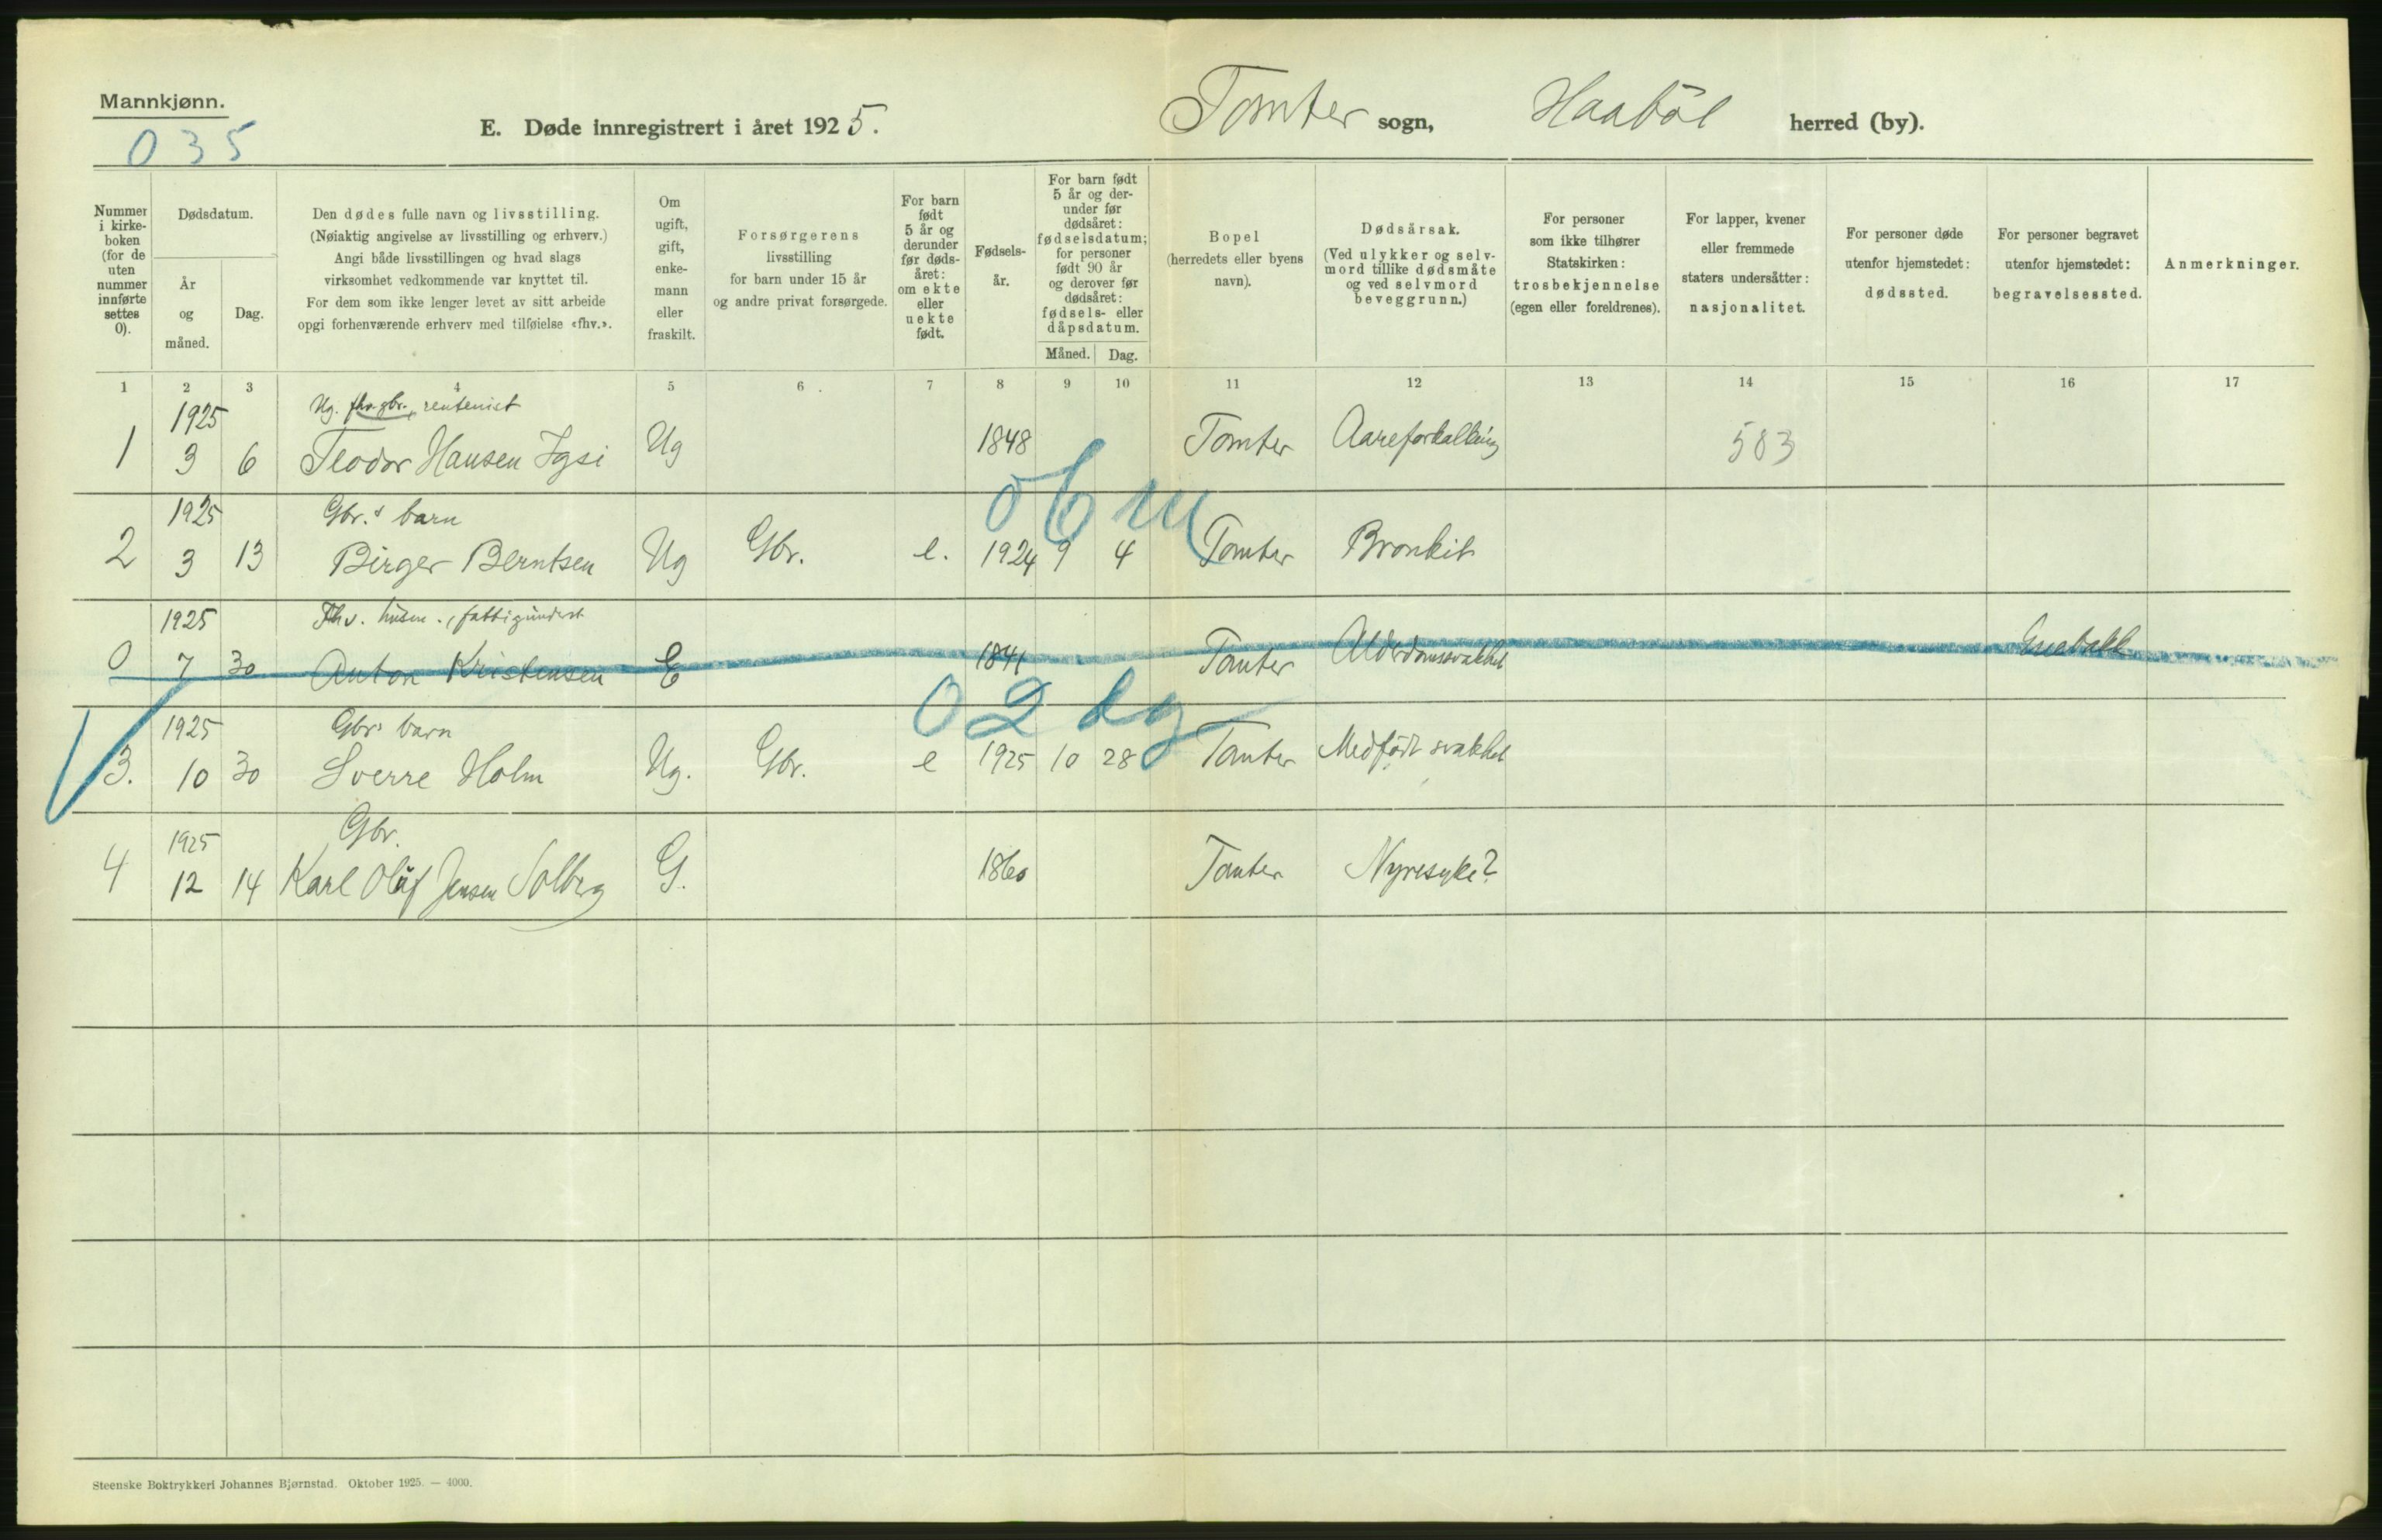 Mannkjønn.
035
E. Døde innregistrert i året 1925.
Tomter sogn, Haabøl herred (by).
Nummer i kirkeboken (for de uten nummer innførte settes 0).
Dødsdatum.
År og måned.
Dag.
Den dødes fulle navn og livsstilling.
(Nøiaktig angivelse av livsstilling og erhverv.)
Angi både livsstillingen og hvad slags
virksomhet vedkommende var knyttet til.
For dem som ikke lenger levet av sitt arbeide
opgi forhenværende erhverv med tilføielse «fhv.».
Om ugift, gift, enkemann eller fraskilt.
Forsørgerens
livsstilling
for barn under 15 år
og andre privat forsørgede.
For barn født 5 år og derunder før dødsåret: om ekte eller uekte født.
Fødselsår.
For barn født 5 år og derunder før dødsåret: fødselsdatum; for personer født 90 år og derover før dødsåret: fødsels- eller dåpsdatum.
Måned. Dag.
Bopel
(herredets eller byens navn).
Dødsårsak.
(Ved ulykker og selvmord tillike dødsmåte og ved selvmord beveggrunn.)
For personer
som ikke tilhører
Statskirken:
trosbekjennelse
(egen eller foreldrenes).
For lapper, kvener
eller fremmede
staters undersåtter:
nasjonalitet.
For personer døde
utenfor hjemstedet:
dødssted.
For personer begravet
utenfor hjemstedet:
begravelsessted.
Anmerkninger.
1 2 3 4 5 6 7 8 9 10 11 12 13 14 15 16 17
1925 Ug. fhv. gbr., rentenist
1 3 6 Teodor Hansen Igsi Ug 1848 Tomter Aareforkalkning 583
06 m
1925 Gbr.s barn
2 3 13 Birger Berntsen Ug Gbr. e. 1924 9 4 Tomter Bronkit
1925 Fhv. husm., fattigunderst.
0 7 30 Anton Kristensen E 1841 Tomter Alderdomssvakhet Enebakk
02 dg
1925 Gbrs barn
3. 10 30 Sverre Holm Ug. Gbr. e 1925 10 28 Tomter Medfødt svakhet
1925 Gbr.
4 12 14 Karl Oluf Jensen Solberg G. 1860 Tomter Nyresyke?
Steenske Boktrykkeri Johannes Bjørnstad. Oktober 1925. — 4000.